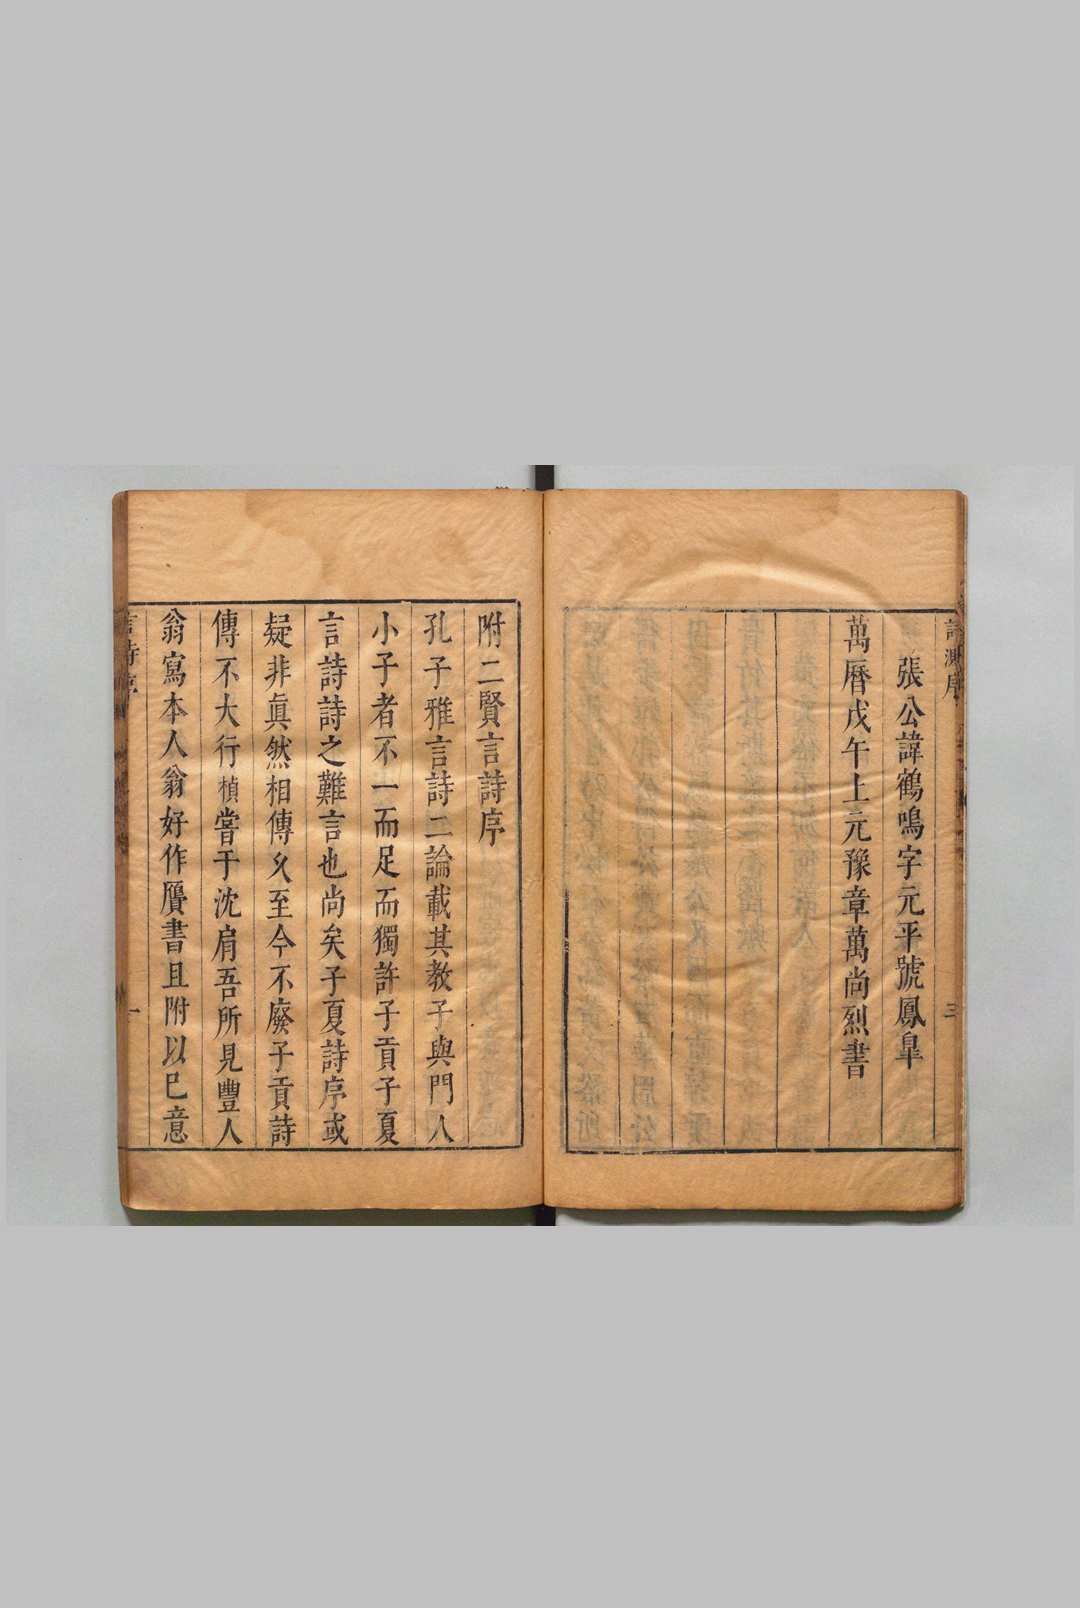 張公諱鶴鳴字元平號鳳皐
萬曆戊午上元豫章萬尚烈書
附二賢言詩序
孔子雅言詩二論載其教子與門人
小子者不一而足而獨許子貢子夏
言詩詩之難言也尚矣子夏詩序或
疑非眞然相傳乆至今不廢子貢詩
傳不大行楨嘗于沈肩吾所見豐人
翁寫本人翁好作贋書且附以已意